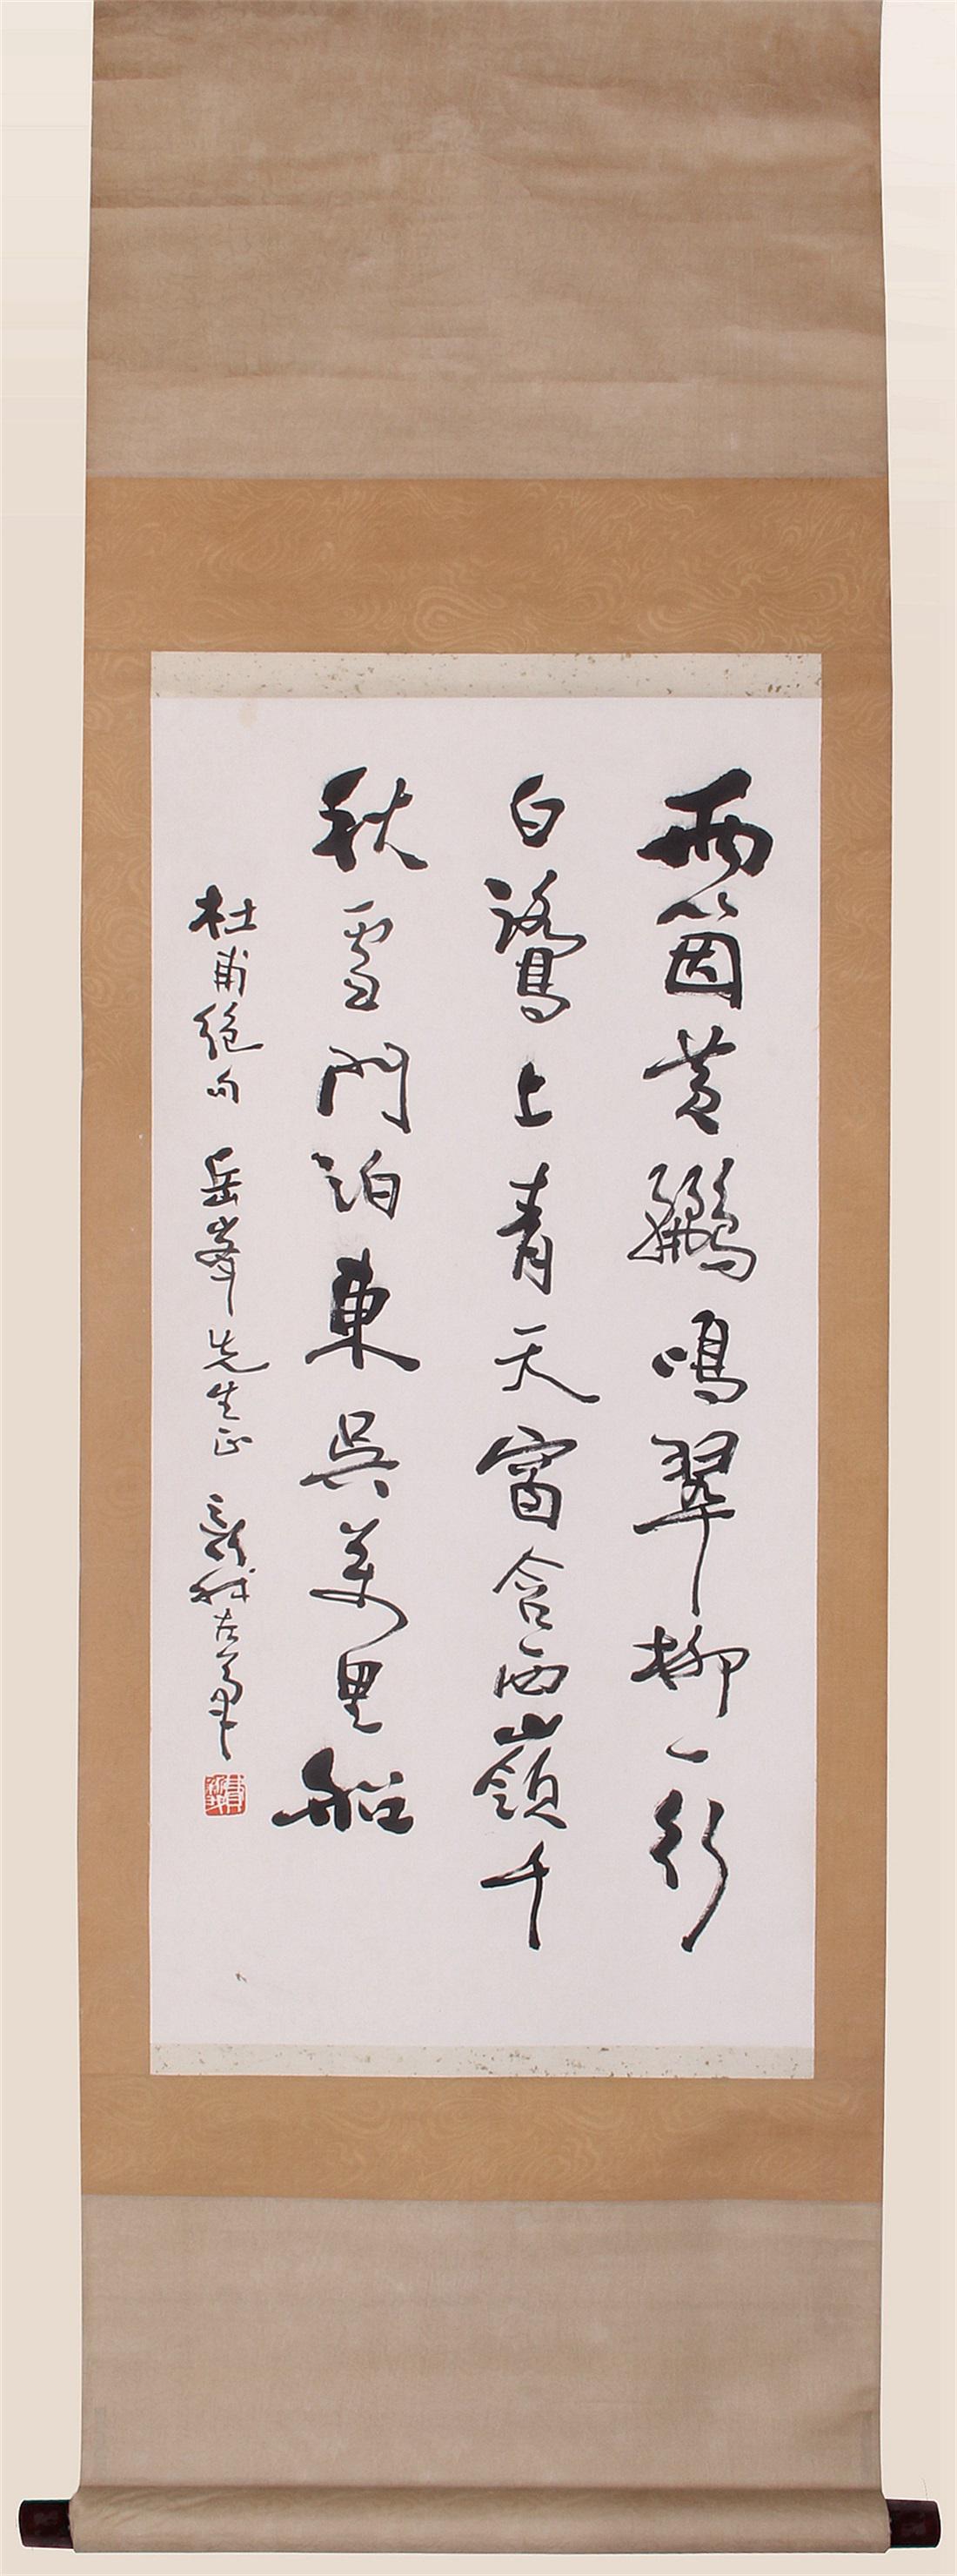 兩箇黃鸝鳴翠柳一行
白鷺上青天窗含西嶺千
秋雪門泊東吳萬里船
杜甫絕句 岳峯先生正 新我左筆